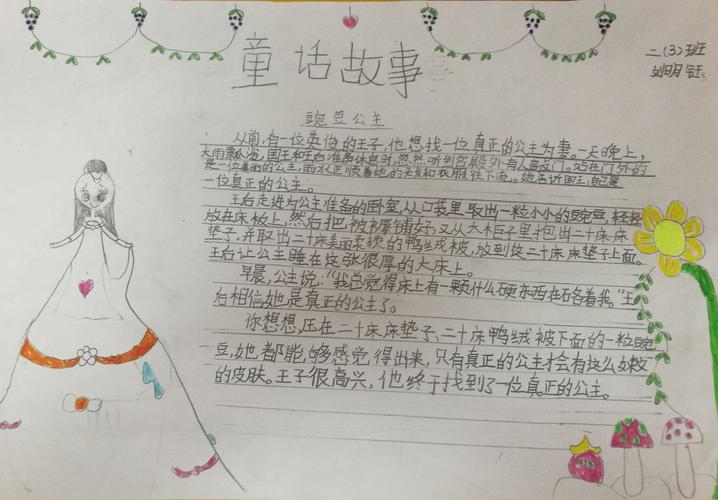 童话故事
二(3)班
刘明钰
豌豆公主
从前,有一位英俊的王子,他想找一位真正的公主为妻。一天晚上,
大雨瓢泼,国王和王后准备休息时,忽然听到宫殿外有人敲门。站在门外的
是一位美丽的公主,雨水正顺着她的头发和衣服往下流。她告诉国王,自己是
一位真正的公主。
王后走进为公主准备的卧室,从口袋里取出一粒小小的豌豆,轻轻
放在床板上,然后把被褥铺好,又从大柜子里抱出二十床床
垫子,并取出二十床美丽柔软的鸭绒被,放到这二十床床垫子上面。
王后让公主睡在这张很厚的大床上。
早晨,公主说:“我总觉得床上有一颗什么硬东西在硌着我。”王
后相信她是真正的公主了。
你想想,压在二十床床垫子、二十床鸭绒被下面的一粒豌
豆,她都能够感觉得出来,只有真正的公主才会有这么嫩
的皮肤。王子很高兴,他终于找到了一位真正的公主。